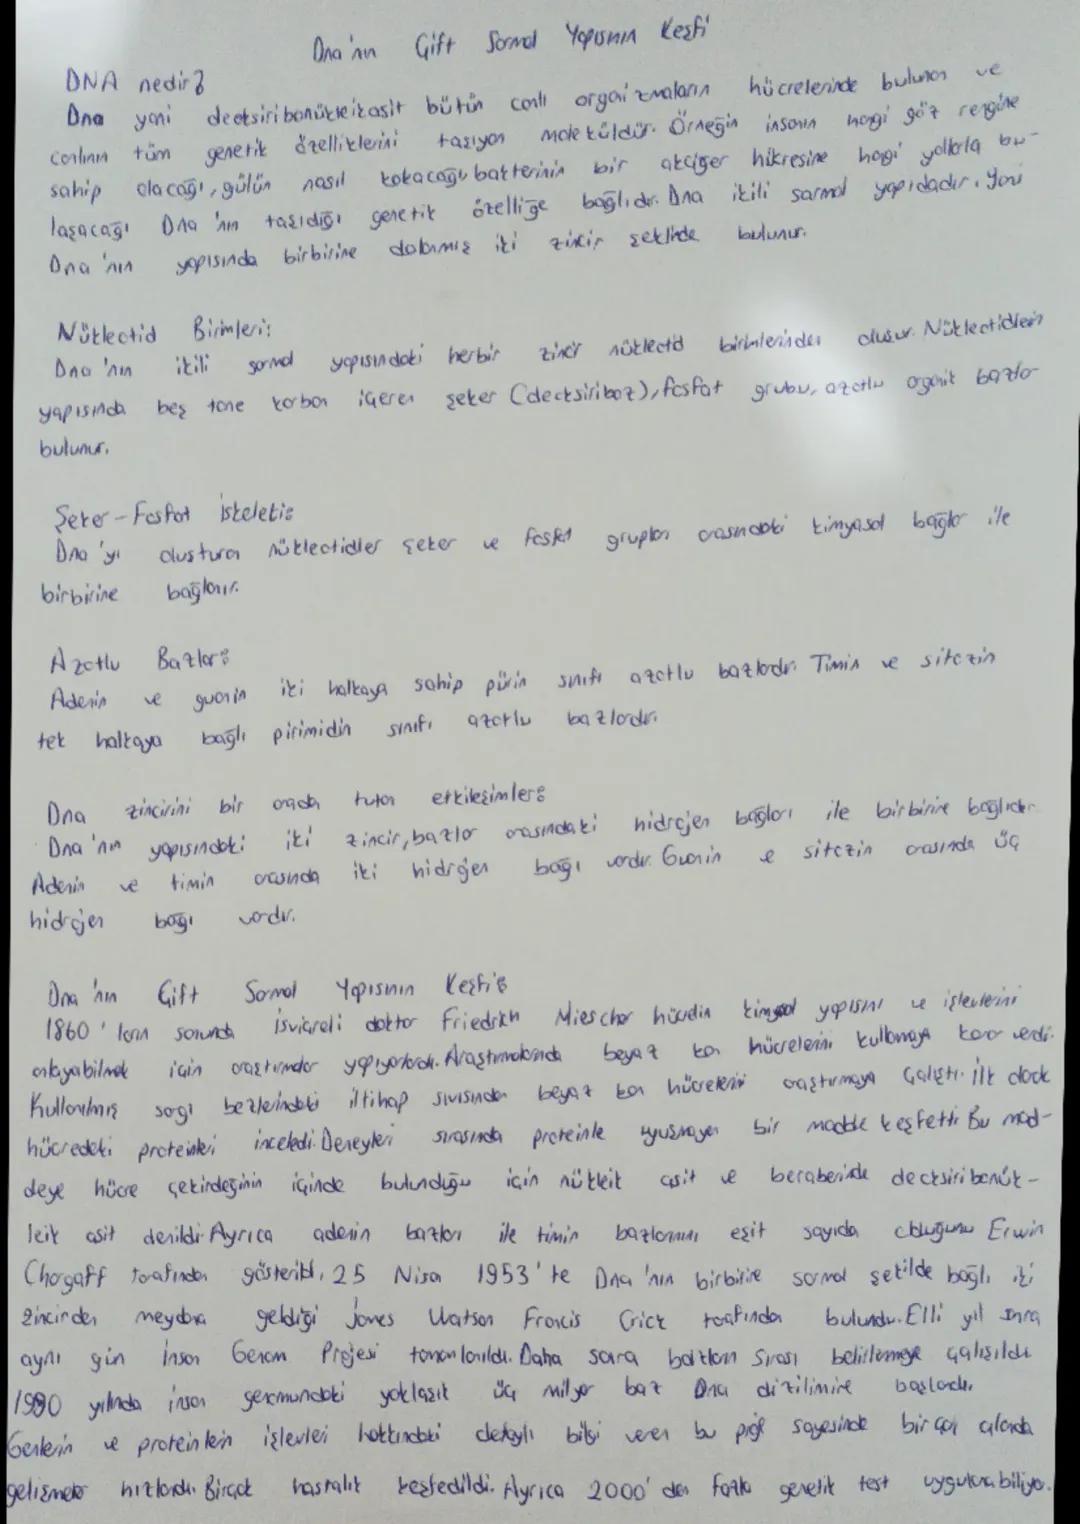 Dna'nın Çift Sarmal Yapısının Keşfi
DNA nedir?
Dna yani deoksiribonükleikasit bütün canlı organizmaların hücrelerinde bulunan ve
canlının tüm genetik özelliklerini taşıyan moleküldür. Örneğin insanın hangi göz rengine
sahip olacağı, gülün nasıl kokacağı, bakterinin bir akciğer hücresine hangi yollarla bu-
laşacağı Dna'nın taşıdığı genetik özelliğe bağlıdır. Dna ikili sarmal yapıdadır. Yani
Dna'nın yapısında birbirine dolanmış iki zincir şeklinde bulunur.
Nükleotid Birimleri:
Dna'nın ikili sarmal yapısındaki herbir zincir nükleotid birimlerinden oluşur. Nükleotidlerin
yapısında beş tane karbon içeren şeker (deoksiriboz), fosfat grubu, azotlu organik bazlar
bulunur.
Şeker-Fosfat İskeleti:
Dna'yı oluşturan nükleotidler şeker ve fosfat grupları arasındaki kimyasal bağlar ile
birbirine bağlanır.
Azotlu Bazlar:
Adenin ve guanin iki halkaya sahip pürin sınıfı azotlu bazlardır. Timin ve sitozin
tek halkaya bağlı pirimidin sınıfı azotlu bazlardır.
Dna zincirini bir arada tutan etkileşimler:
Dna'nın yapısındaki iki zincir, bazlar arasındaki hidrojen bağları ile birbirine bağlıdır.
Adenin ve timin arasında iki hidrojen bağı vardır. Guanin e sitozin arasında üç
hidrojen bağı vardır.
Dna'nın Çift Sarmal Yapısının Keşfi:
1860'ların sonunda isviçreli doktor Friedrich Miescher hücrenin kimyasal yapısını ve işlevlerini
anlayabilmek için araştırmalar yapıyorlardı. Araştırmalarında beyaz kan hücrelerini kullanmaya karar verdi.
Kullanılmış sargı bezlerindeki iltihap sıvısından beyaz kan hücrelerini araştırmaya çalıştı. İlk olarak
hücredeki proteinleri inceledi. Deneyleri sırasında proteinle uyuşmayan bir madde keşfetti. Bu mad-
deye hücre çekirdeğinin içinde bulunduğu için nükleik asit ve beraberinde deoksiribonük-
leik asit denildi. Ayrıca adenin bazları ile timin bazlarının eşit sayıda olduğunu Erwin
Chargaff tarafından gösterildi. 25 Nisan 1953'te Dna'nın birbirine sarmal şekilde bağlı iki
zincirden meydana geldiği James Watson Francis Crick tarafından bulundu. Elli yıl sonra
aynı gün İnsan Genom Projesi tamamlanıldı. Daha sonra bazların sırası belirlemeye çalışıldı
1990 yılında insan genomundaki yaklaşık üç milyar baz Dna dizilimine başlandı.
Genlerin ve proteinlerin işlevleri hakkındaki detaylı bilgi veren bu proje sayesinde birçok alanda
gelişmeler hızlandı. Birçok hastalık keşfedildi. Ayrıca 2000'den fazla genetik test uygulanabiliyor.